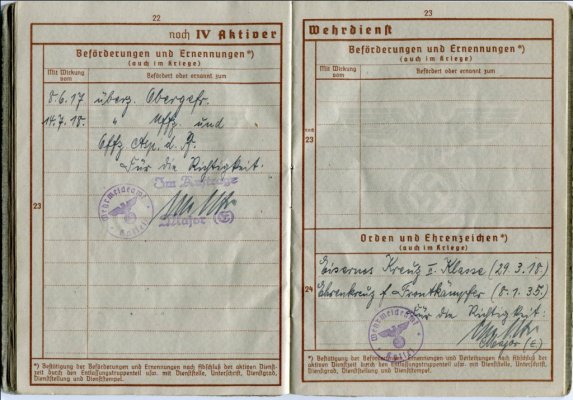 22
noch IV Aktiver
Beförderungen und Ernennungen*)
(auch im Kriege)
Mit Wirkung
vom
Befördert oder ernannt zum
8.6.17 überz. Obergefr.
14.7.18. " Uffz. und
Offz. Asp. d. R.
Für die Richtigkeit:
Im Auftrage
23
Wehrmeldeamt
Major (E)
*) Bestätigung der Beförderungen und Ernennungen nach Abschluß der aktiven Dienst-
zeit durch den Entlassungstruppenteil usw. mit Dienststelle, Unterschrift, Dienstgrad,
Dienststellung und Dienststempel.
23
Wehrdienst
Beförderungen und Ernennungen*)
(auch im Kriege)
Mit Wirkung
vom
Befördert oder ernannt zum
noch
23
Orden und Ehrenzeichen*)
(auch im Kriege)
Eisernes Kreuz II. Klasse (29.3.18.)
24
Ehrenkreuz f. Frontkämpfer (8.1.35.)
Für die Richtigkeit:
Wehrmeldeamt
Major (E.)
*) Bestätigung der Beförderungen, Ernennungen und Verleihungen nach Abschluß der
aktiven Dienstzeit durch den Entlassungstruppenteil usw. mit Dienststelle, Unterschrift,
Dienstgrad, Dienststellung und Dienststempel.